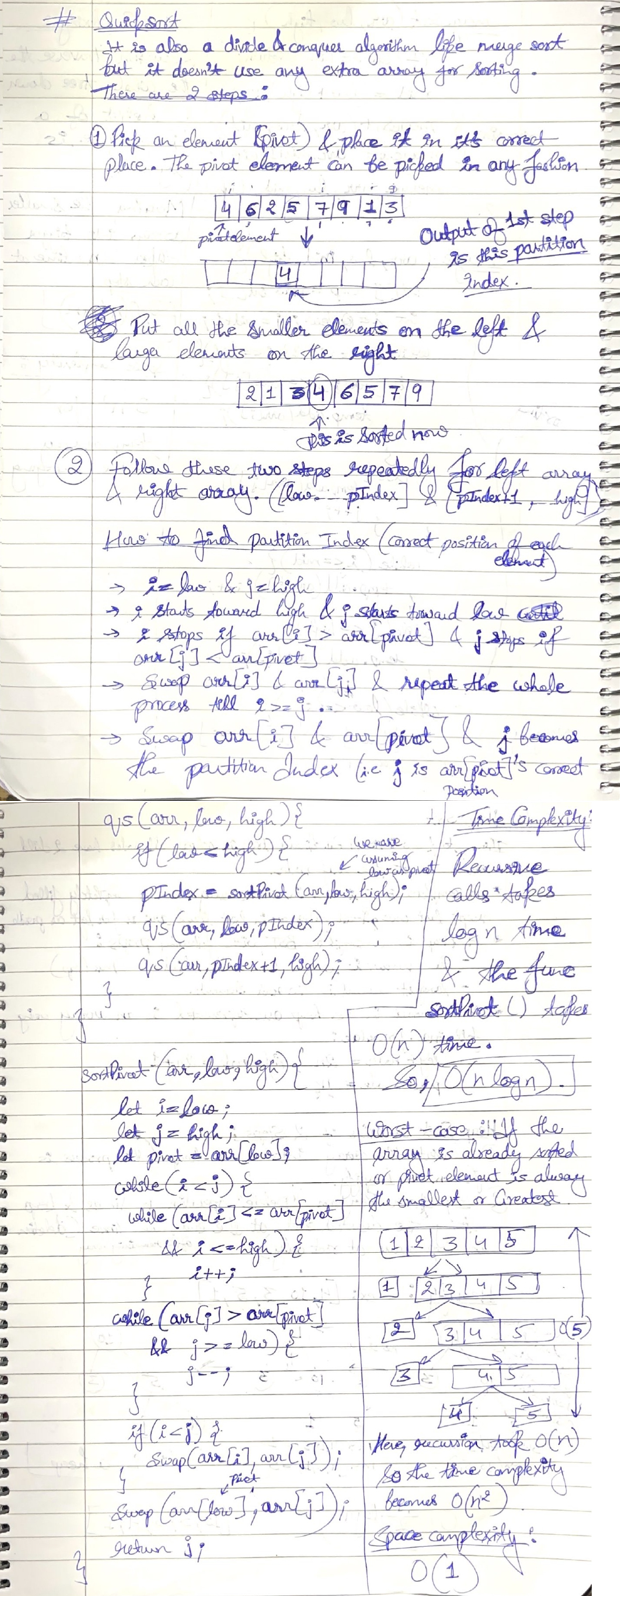 # Quicksort
It is also a divide & conquer algorithm like merge sort
but it doesn't use any extra array for sorting.
There are 2 steps:
① Pick an element (pivot) & place it in it's correct
place. The pivot element can be picked in any fashion
4 6 2 5 7 9 1 3
pivot element
Output of 1st step
is this partition
Index.
4
Put all the smaller elements on the left &
larger elements on the right
2 1 3 4 6 5 7 9
this is sorted now
② Follow these two steps repeatedly for left array
& right array. (low... pIndex] & [pIndex+1, high]
How to find partition Index (correct position of each
element)
→ i = low & j = high
→ i starts toward high & j starts toward low
→ i stops if arr[i] > arr[pivot] & j stops if
arr[j] < arr[pivot]
→ Swap arr[i] & arr[j] & repeat the whole
process till i >= j ..
→ Swap arr[i] & arr[pivot] & j becomes
the partition Index (i.e j is arr[pivot]'s correct
position
qs(arr, low, high) {
if (low < high) {
we have
assuming
low as pivot
pIndex = sortPivot(arr, low, high);
qs(arr, low, pIndex);
qs(arr, pIndex+1, high);
}
}
Time Complexity:
Recursive
calls takes
log n time
& the func
sortPivot() takes
O(n) time.
So, O(n log n).
sortPivot(arr, low, high) {
let i = low;
let j = high;
let pivot = arr[low];
while (i < j) {
while (arr[i] <= arr[pivot]
&& i <= high) {
i++;
}
while (arr[j] > arr[pivot]
&& j >= low) {
j--;
}
if (i < j) {
Swap(arr[i], arr[j]);
}
pivot
Swap(arr[low], arr[j]);
return j;
}
Worst-case: If the
array is already sorted
or pivot element is always
the smallest or Greatest.
1 2 3 4 5
1 2 3 4 5
2 3 4 5 O(5)
3 4 5
4 5
Here, recursion took O(n)
So the time complexity
becomes O(n²)
Space complexity:
O(1)